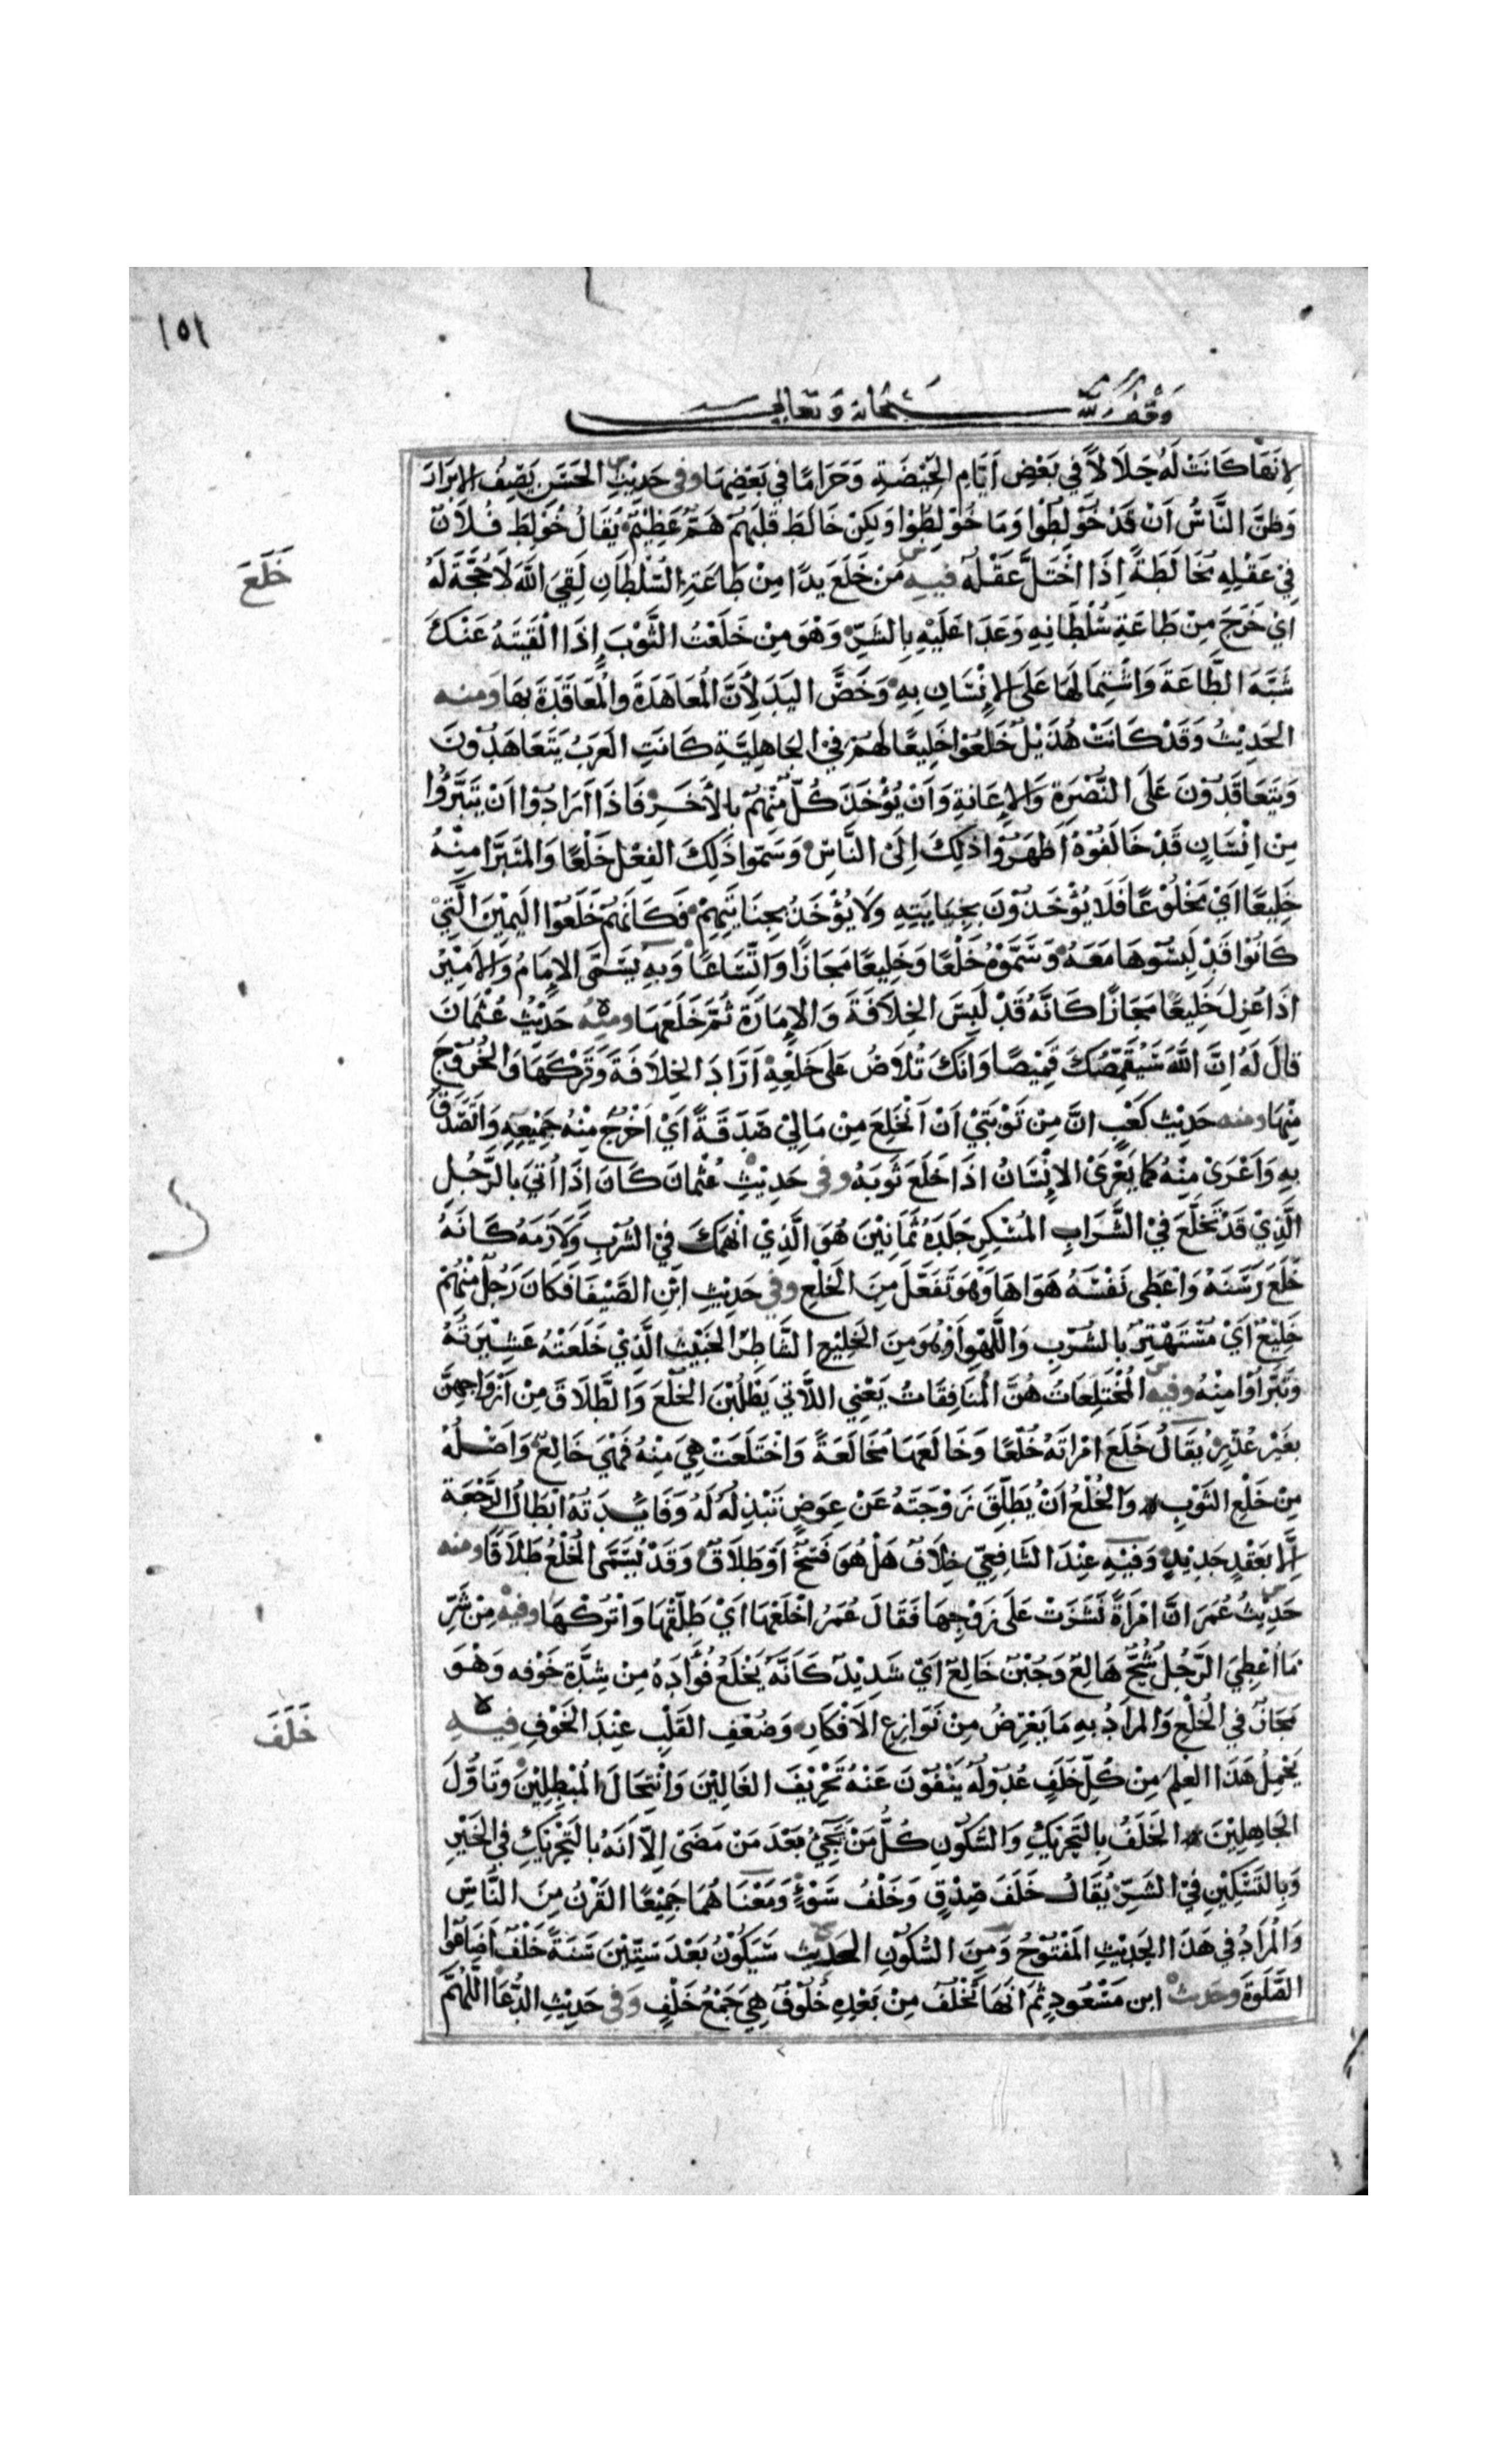 ١٥١
وقف لله سبحانه وتعالى
لِانَهَا كَانَتْ لَهُ حَلَالاً في بَعْضِ اَيَّامِ الحَيْضَةِ وَحَرَامًا في بَعْضِهَا وفى حَدِيْثِ الحَسَنِ يَصِفُ الابْرَارَ
وَظَنَّ النَّاسُ اَنْ قَدْ خُوْلِطُوْا وَمَا خُوْلِطُوْا وَلكِنْ خَالَطَ قَلْبَهُمْ هَمٌّ عَظِيْمٌ يُقَالُ خُوْلِطَ فُلاَنٌ
فِيْ عَقْلِهِ مُخَالَطَةً اِذَا اخْتَلَّ عَقْلُهُ فيه مَنْ خَلَعَ يَدًا مِنْ طَاعَةِ السُّلْطَانِ لَقِيَ اللّهَ لَا حُجَّةَ لَهُ
خَلَعَ
اي خَرَجَ مِنْ طَاعَةِ سُلْطَانِهِ وَعَدَا عَلَيْهِ بِالشَّرِّ وَهْوَ مِنْ خَلَعْتُ الثَّوْبَ اِذَا الْقَيْتَهُ عَنْكَ
شَبَّهَ الطَّاعَةَ وَاشْتِمَالَهَا عَلَى الاِنْسَانِ بِهِ وَخَصَّ اليَدَ لِاَنَّ المُعَاهَدَةَ وَالمُعَاقَدَةَ بهَا ومنه
الحَدِيْثُ وَقَدْ كَانَتْ هُذَيْلٌ خَلَعُوْا خَلِيعًا لَهمْ فِيْ الجَاهِلِيَّةِ كَانَتِ العَرَبُ يَتَعَاهَدُوْنَ
وَيَتَعَاقَدُوْنَ عَلَى النُّصْرَةِ وَالاِعَانَةِ وَاَنْ يُؤْخَذَ كُلٌّ مِنْهُمْ بِالاَخَرِ فَاذَا اَرَادُوْا اَنْ يَتَبَرَّؤُا
مِنْ اِنْسَانٍ قَدْ حَالَفُوْهُ اَظْهَرُوْا ذلِكَ اِلَى النَّاسِ وَسَمَّوا ذَلِكَ الفِعْلَ خَلْعًا وَالمتَبَرَّا مِنْهُ
خَلِيعًا اَيْ مَخْلُوْعًا فَلَا يُؤْخَذُوْنَ بِجِنَايَتِهِ وَلَا يُؤْخَذُ بِجِنَايَتِهِمْ فَكَانَهُمْ خَلَعُوْا اليَمِيْنَ الَّتِيْ
كَانُوْا قَدْ لَبِسُوْهَا مَعَهُ وَسَمَّوْهُ خَلْعًا وَخَلِيعًا مَجَازًا وَاتِّسَاعًا وَبِهِ يُسَمَّى الاِمَامُ وَالاَمِيْرُ
اذَا عُزِلَ خَلِيعًا مَجَازًا كَانَّهُ قَدْ لَبِسَ الخِلَافَةَ وَالاِمَارَةَ ثُمَّ خَلَعَهَا ومنه حَدِيْثُ عُثْمَانَ
قالَ لَهُ اِنَّ اللّهَ سَيُقَمِّصُكَ قَمِيْصًا وَانكَ تُلَاصُ عَلَى خَلْعِهِ اَرَادَ الخِلَافَةَ وَتَرْكَهَا وَالخُرُوْجَ
مِنْهَا ومنه حَدِيْث كَعْبٍ انَّ مِنْ تَوْبَتِيْ اَنْ اَنْخَلِعَ مِنْ مَالِيْ صَدَقَةً اَيْ اَخْرُجُ مِنْهُ جَمِيْعِهِ وَاتَصَدَّقُ
بِهِ وَاَعْرَى مِنْهُ كمَا يَعْرَى الاِنْسَانُ اذَا خَلَعَ ثَوبَهُ وفى حَدِيْثِ عُثْمَانَ كَانَ اِذَا اُتيَ بِالرَّجُلِ
الَّذِيْ قَدْ تَخَلَّعَ فيْ الشَّرَابِ المُسْكِرِ جَلَدَهُ ثَمَانِيْنَ هُوَ الَّذِيْ انْهَمَكَ فِيْ الشُرْبِ وَلَازَمَهُ كَانَهُ
خَلَعَ رَسَنَهُ وَاعْطَى نَفْسَهُ هَوَاهَا وَهْوَ تَفَعَّلَ مِنَ الخَلْعِ وفي حَدِيْثِ ابْنِ الصَّبْغَا فَكَانَ رَجُلٌ مِنْهُمْ
خَلِيْعٌ اَيْ مُسْتَهْتِرٌ بِالشُرْبِ وَاللَّهْوِ اَوْ هُوَ مِنَ الخَلِيْعِ الشَّاطِرِ الخَبِيْثِ الَّذِيْ خَلَعَتْهُ عَشِيْرَتُهُ
وَتَبَرَّاوْا مِنْهُ وفيه المُخْتَلِعَاتُ هُنَّ المُنَافِقَاتُ يَعْنِي اللَّاتِي يَطْلُبْنَ الخُلْعَ وَالطَّلَاقَ مِنْ اَزْوَاجِهِنَّ
بغَيْرِ عُذْرٍ يُقَالُ خَلَعَ امْرَاتَهُ خُلْعًا وَخَالَعَهَا مُخَالَعَةً وَاخْتَلَعَتْ هِيَ مِنْهُ فَهْيَ خَالِعٌ وَاصْلُهُ
مِنْ خَلْعِ الثَوْبِ وَالخُلْعُ اَنْ يُطَلِّقَ زَوْجَتَهُ عَنْ عِوَضٍ تَبْذِلُهُ لَهُ وَفَايِدَتُهُ ابْطَالُ الرَّجْعَةِ
اِلَّا بعَقْدٍ جَدِيْدٍ وَفِيْهِ عِنْدَ الشَافِعِيّ خِلَافٌ هَلْ هُوَ فَسْخٌ اَوْ طَلَاقٌ وَقَدْ يُسَمَّى الخُلْعُ طَلَاقًا ومنه
حَدِيْثُ عُمَرَ انَّ امْرَاَةً نَشَزَتْ عَلَى زَوْجِهَا فَقَالَ عُمَرُ اخْلَعْهَا اَيْ طَلِّقْهَا وَاتْرُكْهَا وفيه مِنْ شَرِّ
مَا اُعْطِيَ الرَّجُلُ شُحٌّ هَالِعٌ وَجُبْنٌ خَالِعٌ اَيْ شَدِيْدٌ كَانَّهُ يَخْلَعُ فُؤَادَهُ مِنْ شِدَّةِ خَوْفِهِ وَهْوَ
مجَازٌ في الخَلْعِ وَالمرَادُ بِهِ مَا يَعْرِضُ مِنْ نَوَازِعِ الاَفْكَارِ وَضُعْفِ القَلْبِ عِنْدَ الخَوْفِ فيه
خَلَفَ
يَحْمِلُ هَذَا العِلْمَ مِنْ كُلِّ خَلَفٍ عُدُوْلُهُ يَنْفُوْنَ عَنْهُ تَحْرِيْفَ الغَالِيْنَ وَانْتِحَالَ المُبْطِلِيْنَ وتَاَوُّلَ
الجَاهِلِيْنَ الخَلَفُ بِالتَحْرِيْكِ وَالسُّكُوْنِ كُلُّ مَنْ يَجِيْءُ بَعْدَ مَنْ مَضَى اِلَّا اَنَهُ بالتَحْرِيْكِ في الخَيْرِ
وَبِالتَسْكِيْنِ فِيْ الشَرِّ يُقَالُ خَلَفُ صِدْقٍ وَخَلْفُ سَوْءٍ وَمَعْنَاهُمَا جَمِيْعًا القَرْنُ مِنَ النَّاسِ
وَالمُرَادُ في هَذَا الحَدِيْثِ المَفْتُوْحُ وَمِنَ السُّكُوْنِ الحَدِيْث سَيَكُوْنُ بَعْدَ سِتِّيْنَ سَنَةً خَلْفٌ اَضَاعُوْا
الصَّلوةَ وحديث ابن مَسْعُوْدٍ ثُمَ انَهَا تَخْلُفُ مِنْ بَعْدِهِ خُلُوْفٌ هِيَ جَمْعُ خَلْفٍ وَفى حَدِيْثِ الدُّعَا اللّهُمَّ